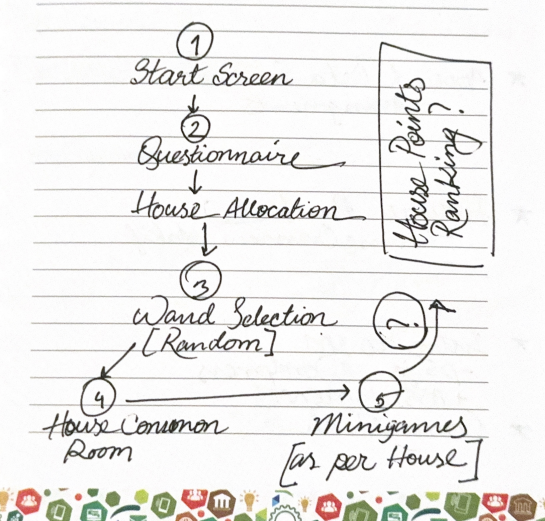 1
Start Screen
2
Questionnaire
House Allocation
3
Wand Selection
[Random]
4
House Common
Room
5
Minigames
[as per House]
?
House Points
Ranking?